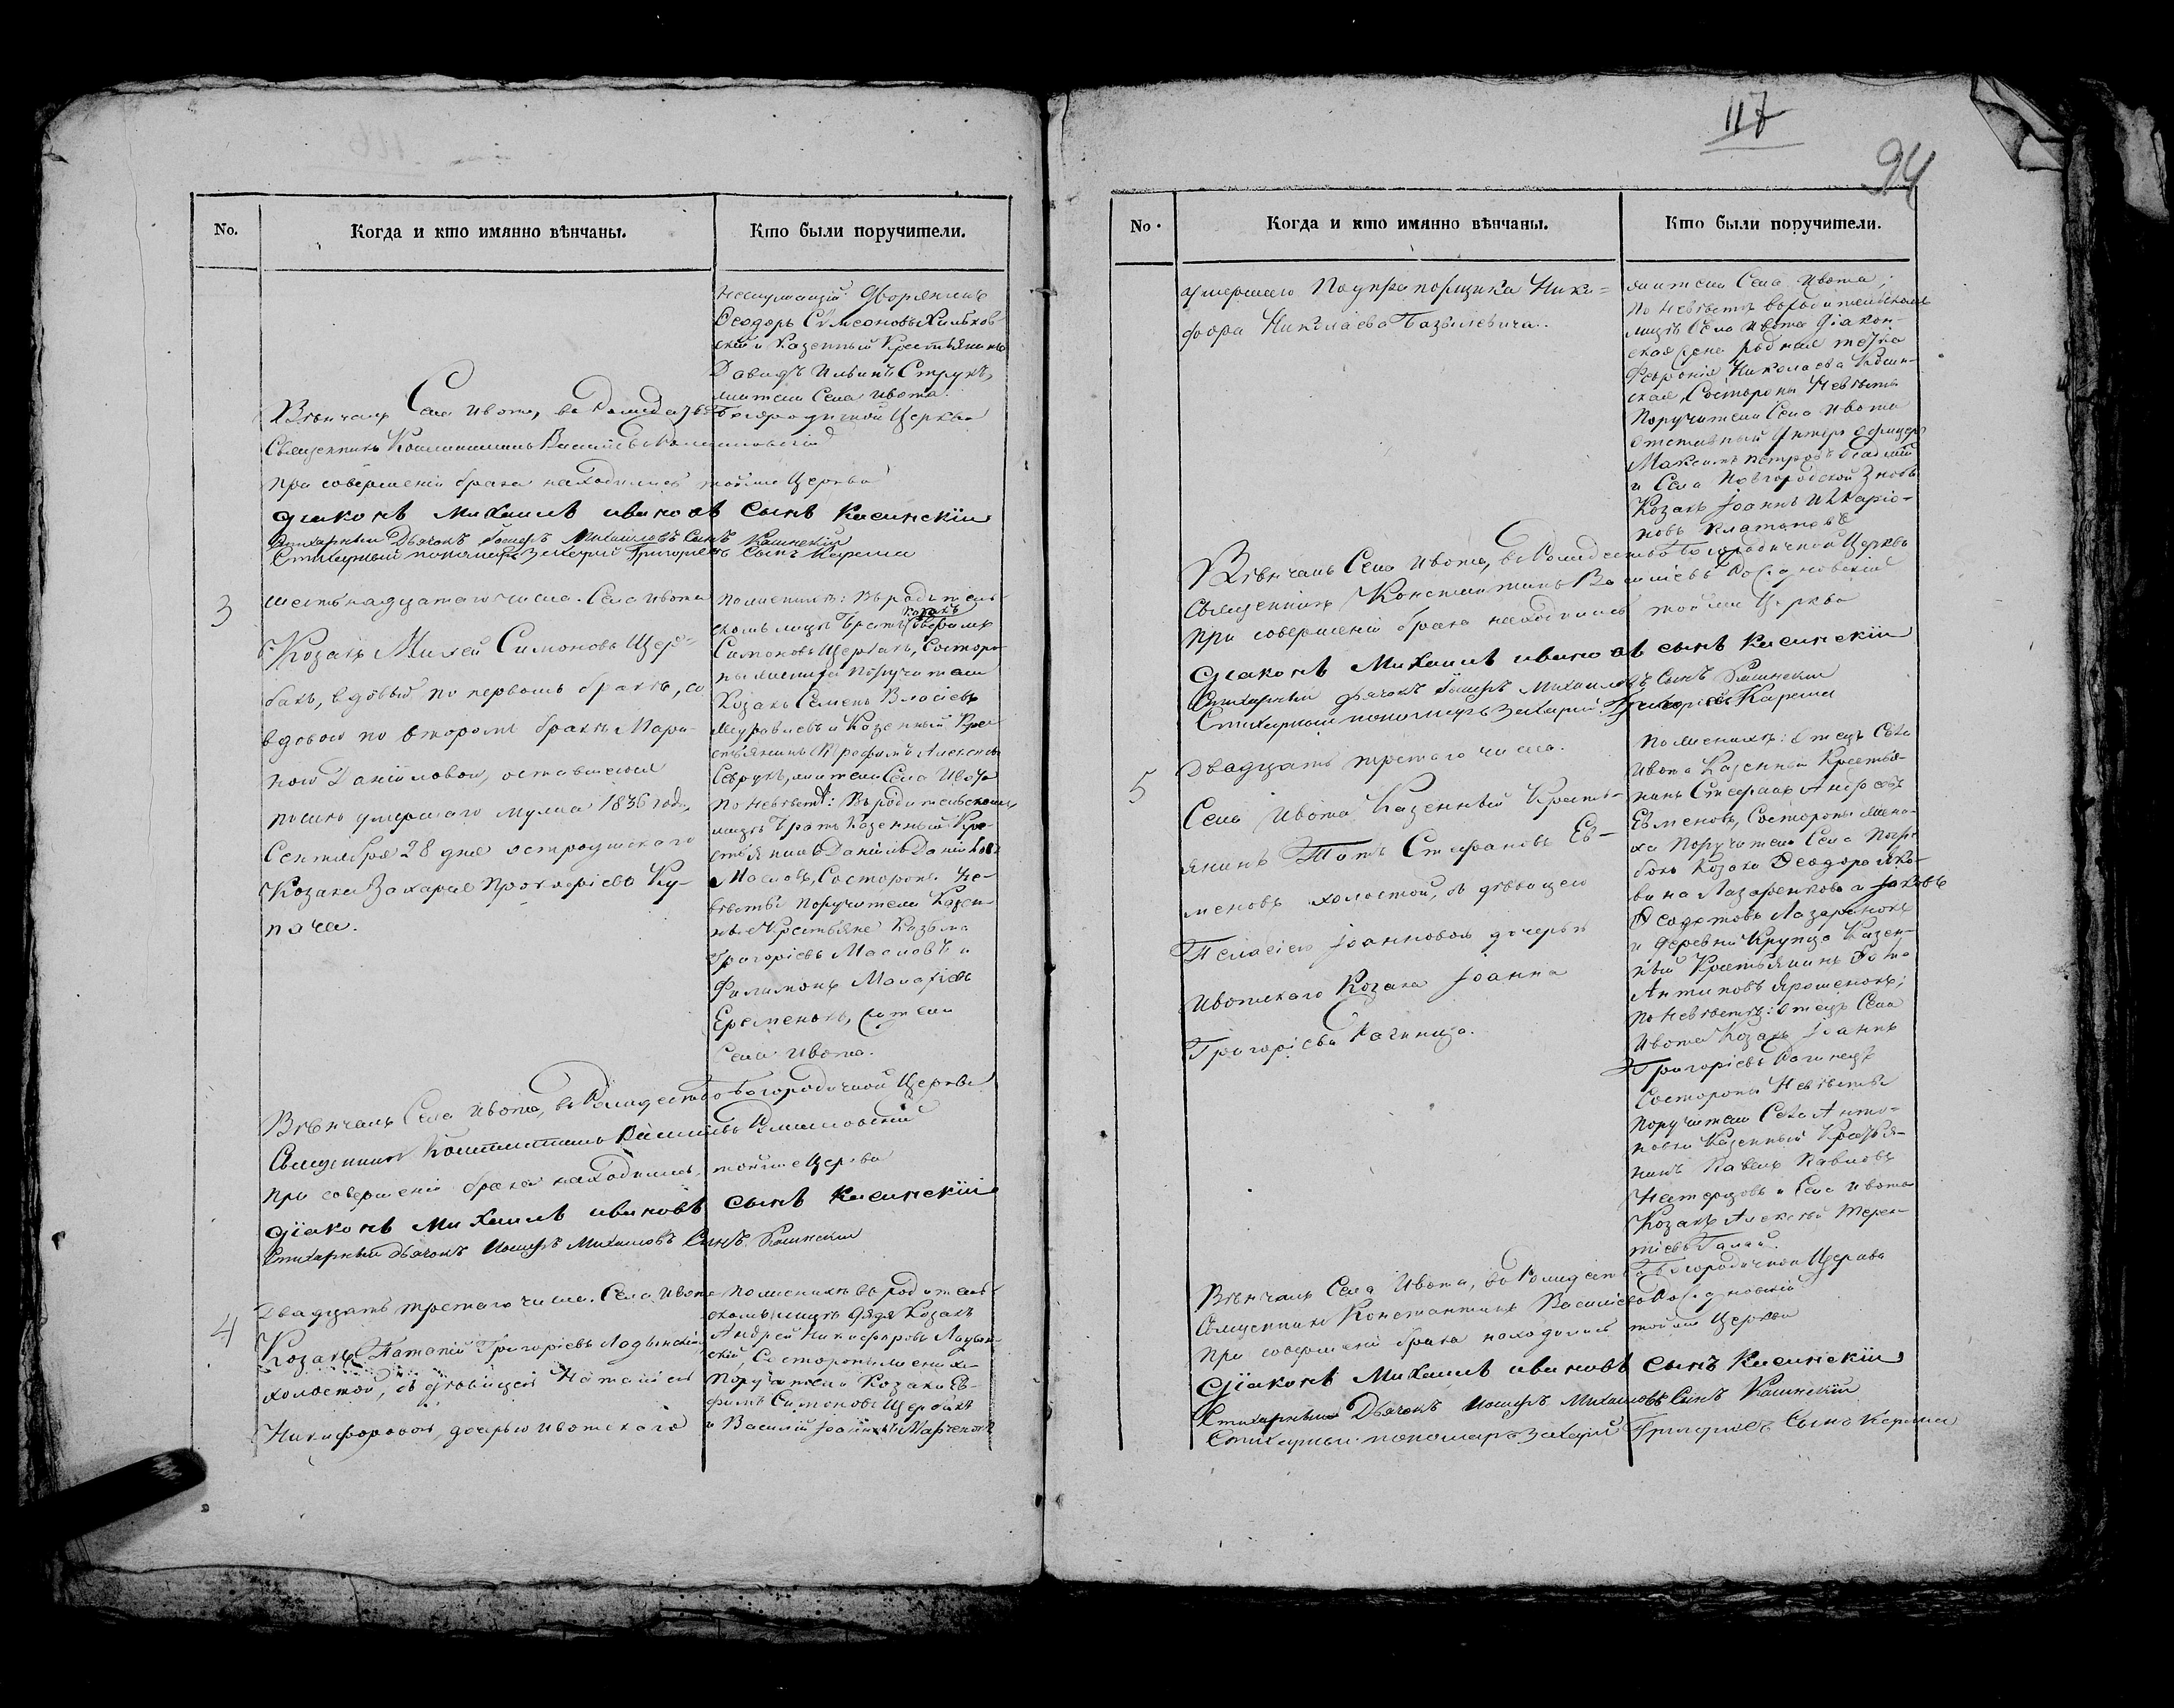 No.
Когда и кто имянно вѣнчаны.
Кто были поручители.
Неслужащій Дворянинъ
Ѳеодоръ Симеоновъ
скій и Казенный Крестьянинъ
Давидъ Ильинъ Струкъ,
жители Села Ивота.
Вѣнчалъ Села Ивота, въ Рождество Богородичной Церкви
Священникъ Константинъ Васильевъ
при совершеніи брака находились тойже Церкви
Діаконъ Михаилъ Ивановъ сынъ Касинскій
Стихарный Дьячокъ Іосифъ Михаиловъ Сынъ Касинскій
Стихарный пономаръ Захарій Григоріевъ Сынъ Карпша
3
Шестьнадцатаго числа. Села Ивота
Козакъ Михей Симоновъ Щер=
бакъ, вдовый по первомъ бракѣ, со
вдовою по второмъ бракѣ Мари-
ною Даниловою, оставшеюся
послѣ умершаго мужа 1836 года,
Сентября 28 дня
Козака Захарія Прокофіева Ку-
пача.
по женихѣ: Въ родитель-
скомъ мѣстѣ братъ козакъ
Симоновъ Щербакъ, Со сторо-
ны жениха поручители
Козакъ Семенъ Власіевъ
Муравлевъ и Казенный Кре
стьянинъ Трофимъ Алексѣевъ
жители Села Ивота
По невѣстѣ: Въ родительскомъ
мѣстѣ братъ Казенный Кре-
стьянинъ Даніилъ Даніиловъ
Масловъ, Со стороны Не-
вѣсты поручители Казен-
ные Крестьяне Козьма
Григоріевъ Масловъ и
Филимонъ
Еременокъ, жители
Села Ивота.
Вѣнчалъ Села Ивота, въ Рождество Богородичной Церкви
Священникъ Константинъ Васильевъ
при совершеніи брака находились тойже Церкви
Діаконъ Михаилъ Ивановъ сынъ Касинскій
Стихарный Дьячокъ Іосифъ Михаиловъ Сынъ Касинскій
4
Двадцать третьяго числа. Села Ивота
Козакъ Потапій Григоріевъ Ладынскій
холостой, съ дѣвицей Наталіею
Никифоровою, дочерью Ивотскаго
По женихѣ въ родитель-
скомъ мѣстѣ дядя Козакъ
Андрей Никифоровъ Ладын-
скій, Со стороны жениха
Поручители Козаки Еф-
фимъ Симоновъ Щербакъ
и Василій Іоанновъ Марченокъ
117
94
No.
Когда и кто имянно вѣнчаны.
Кто были поручители.
умершаго Подпрапорщика Ники=
фора Николаева Базилевича.
жители Села Ивота;
По Невѣстѣ въ родительскомъ
мѣстѣ Села Ивота Діакон-
ская жена родная тетка
Февронія Николаева Касин-
ская, Со стороны Невѣсты
Поручители Села Ивота
отставный Унтеръ офицеръ
Максимъ Петровъ
и Села Новгородской
Козакъ Іоаннъ
новъ Платоновъ
Вѣнчалъ Села Ивота, въ Рождество Богородичной Церкви
Священникъ Константинъ Васильевъ
при совершеніи брака находились тойже Церкви
Діаконъ Михаилъ Ивановъ сынъ Касинскій
Стихарный Дьячокъ Іосифъ Михаиловъ Сынъ Касинскій
Стихарный пономарь Захарій Григоріевъ Карпша
5
Двадцать третьяго числа.
Села Ивота Казенный Кресть-
янинъ Титъ Стефановъ Ев-
меновъ холостой, съ дѣвицею
Пелагіею Іоанновою дочерью
Ивотскаго Козака Іоанна
Григоріева Рагинца.
По женихѣ: отецъ Села
Ивота Казенный Крестья-
нинъ Стефанъ
Евменовъ, Со стороны жени-
ха Поручители Села Погре
бокъ Козаки Ѳеодоръ Яко-
вина Лазаренковъ и Іаковъ
Ѳеодотовъ Лазаренокъ
и деревни Крупца Казен-
ный Крестьянинъ Ѳома
Антиповъ Ярошенокъ;
по Невѣстѣ: отецъ Села
Ивота Козакъ Іоаннъ
Григоріевъ Рагинецъ
Со стороны Невѣсты
Поручители Села Анто-
новки Казенный Крестья-
нинъ Павелъ Павловъ
и Села Ивота
Козакъ Алексѣй Терен-
тіевъ Галай.
Вѣнчалъ Села Ивота, въ Рождество Богородичной Церкви
Священникъ Константинъ Васильевъ
при совершеніи брака находились тойже Церкви
Діаконъ Михаилъ Ивановъ Сынъ Касинскій
Стихарный Дьячокъ Іосифъ Михаиловъ Сынъ Касинскій
Стихарный пономарь Захарій Григоріевъ Сынъ Карпша